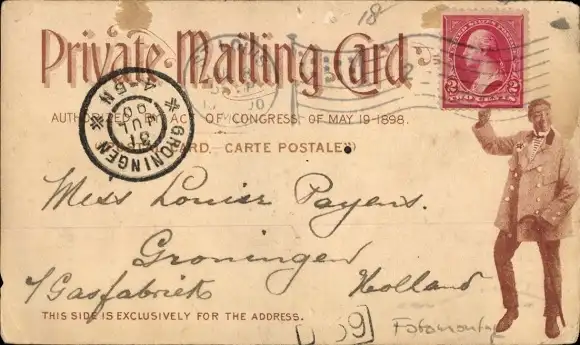 18
Private Mailing Card
AUTHORIZED BY ACT OF CONGRESS, OF MAY 19-1898.
CARD, CARTE POSTALE
UNITED STATES POSTAGE
2 TWO CENTS 2
GRONINGEN
4-5N
31 JUL
00
Miss Louise Payens.
Groningen
Holland
Gasfabriek
THIS SIDE IS EXCLUSIVELY FOR THE ADDRESS.
Fotomontage